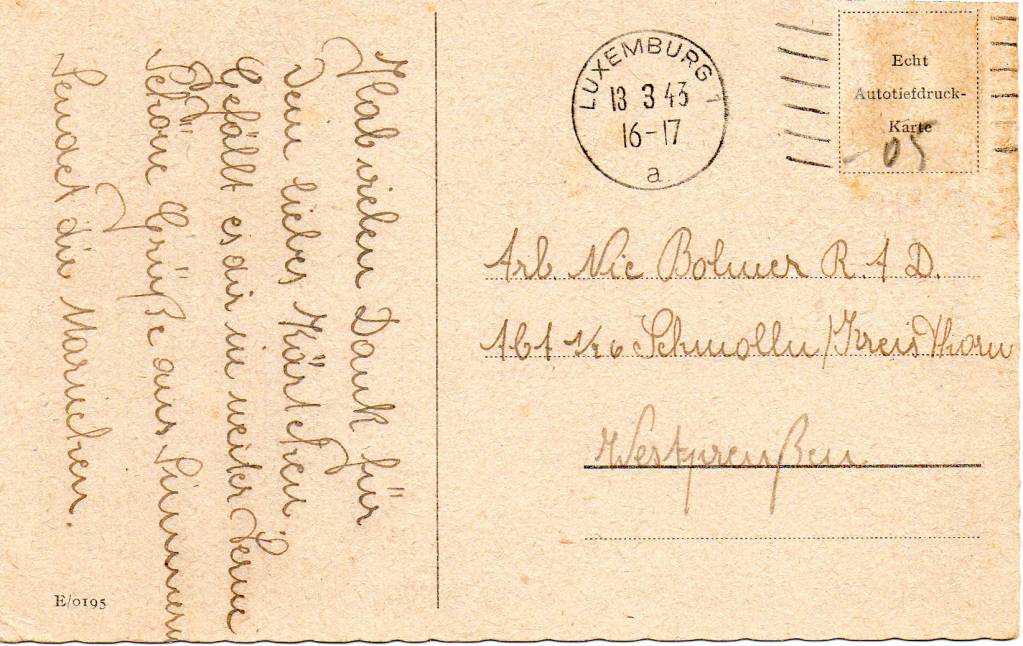 Hab vielen Dank für
Dein liebes Kärtchen.
Gefällt es dir in weiter Ferne
Schöne Grüße aus
Sendet dir Marichen.
E/0195
LUXEMBURG 1
13 3 43
16-17
a
Echt
Autotiefdruck-
Karte
05
Arb. Nic Bohmer R. A D.
Abt 1/26 Schmolln/Kreis Thorn
Westpreußen